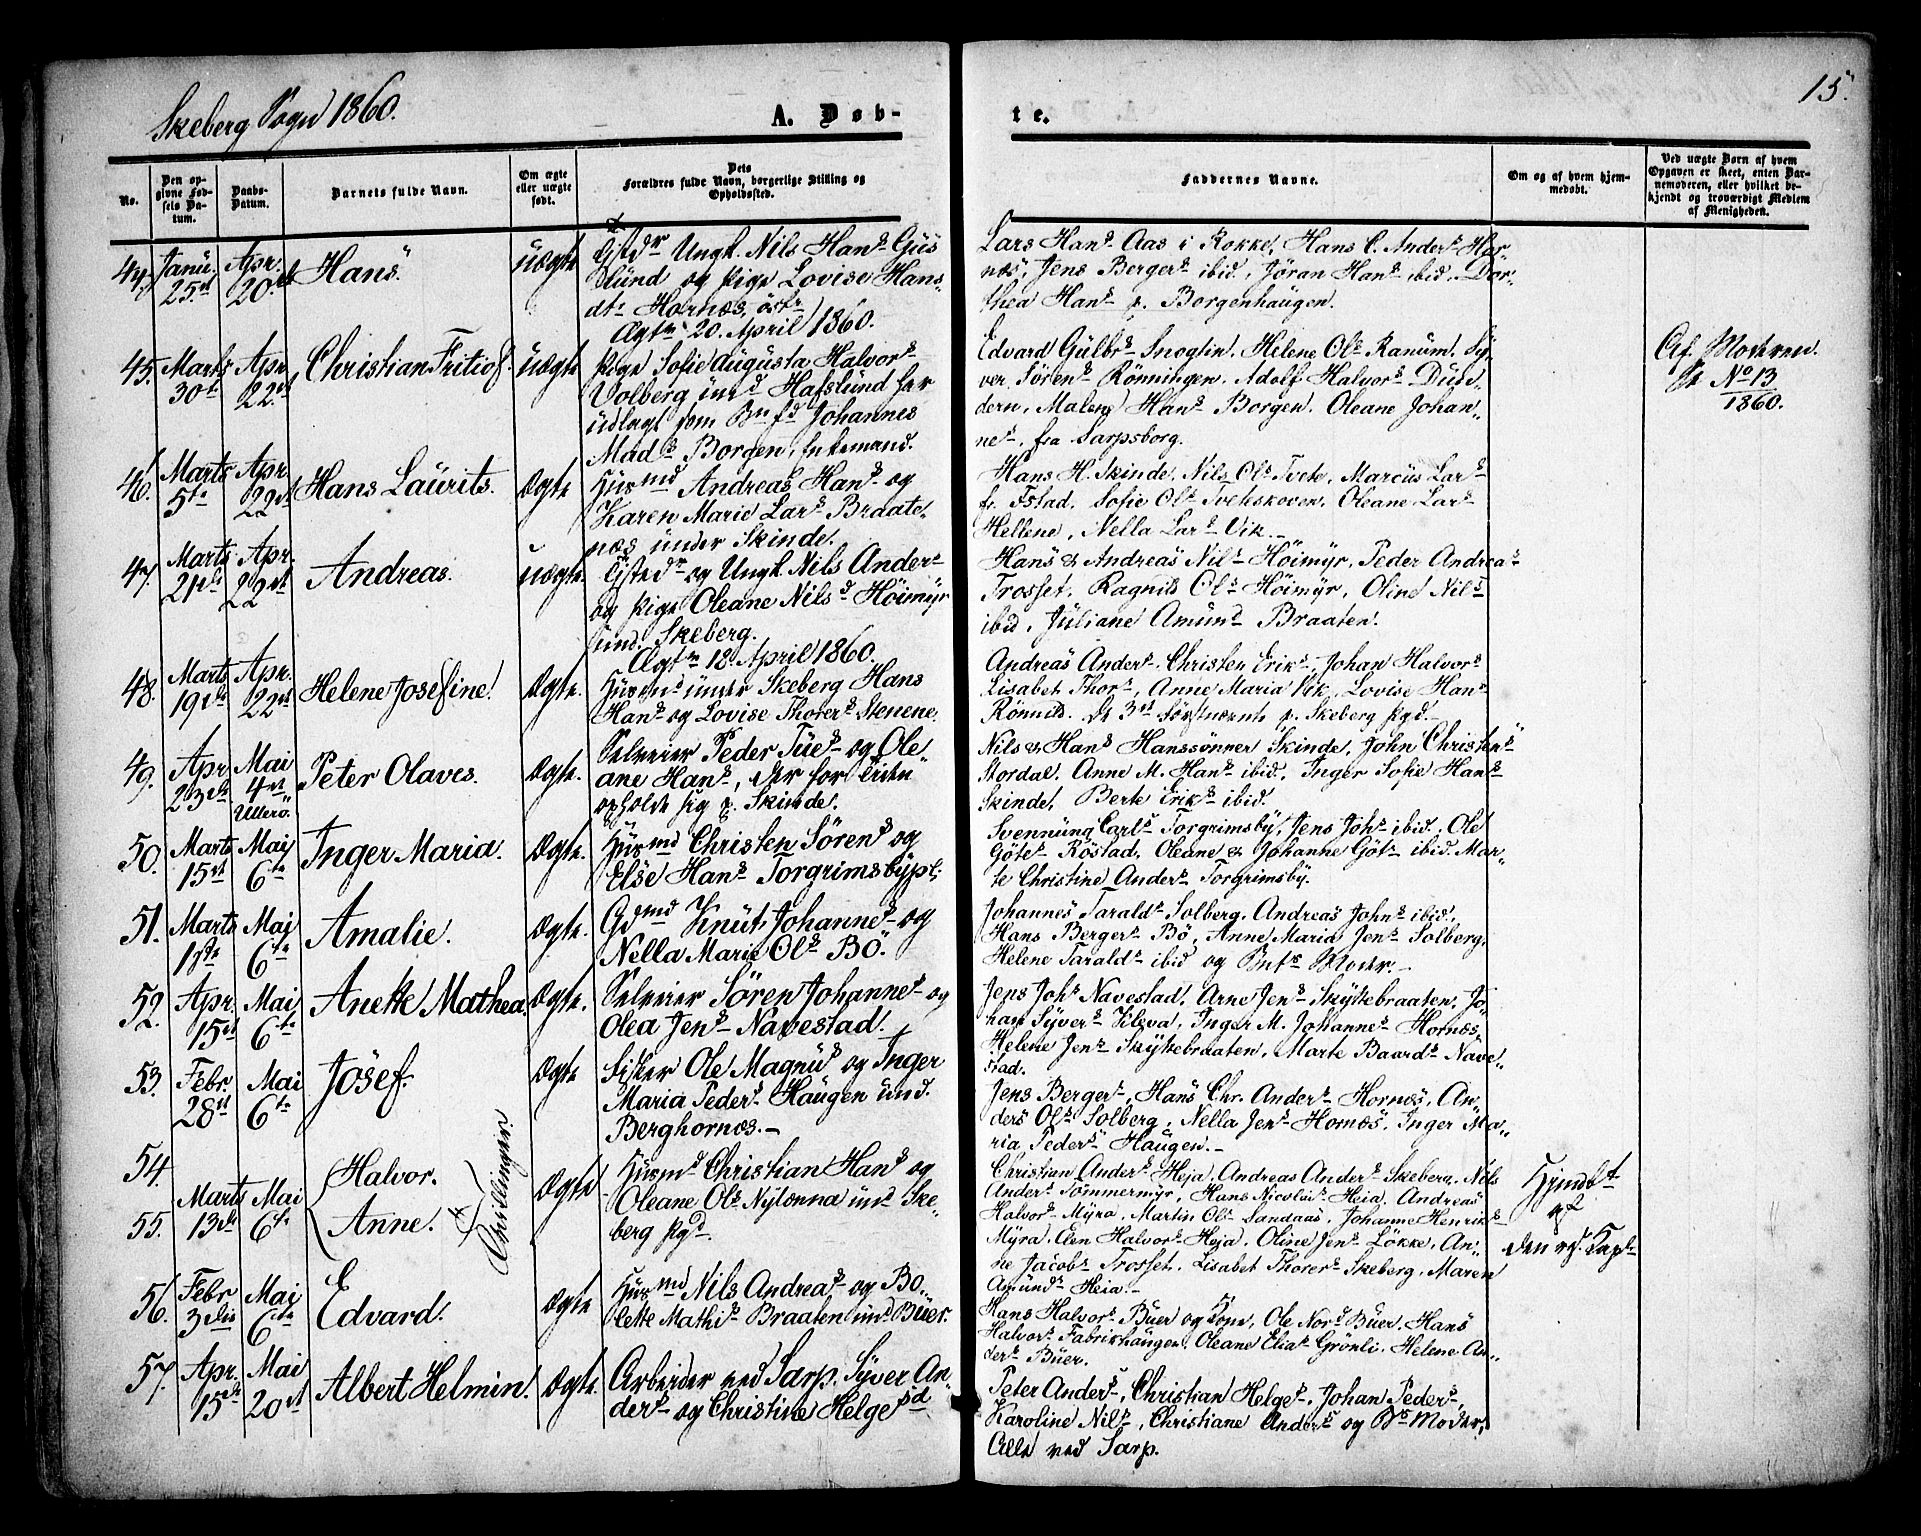 Skeberg Sogn 1860.
A. Døb-
te.
15.
No.
Den op-
givne Fød-
sels Da-
tum.
Daabs-
Datum.
Barnets fulde Navn.
Om ægte
eller uægte
født.
Dets
Forældres fulde Navn, borgerlige Stilling og
Opholdssted.
Faddernes Navne.
Om og af hvem hjem-
medøbt.
Ved uægte Børn af hvem
Opgaven er skeet, enten Bar-
nemoderen, eller hvilket be-
kjendt og troværdigt Medlem
af Menigheden.
44.
Janu.
25de
Apr.
20de
Hans
uægte
Gifted Ungk. Nils Hans Gus
lund og Pige Lovise Hans
dt. Hornæs, østr.
Ægtv. 20. April 1860.
Lars Hans Aas i Rokke, Hans C. Anders Hor-
næs, Jens Bergers ibid, Jöran Hans ibid. Dor-
thea Hans p. Borgenhaugen.
45.
Marts
30te
Apr
22de
Christian Fritiof.
uægte
Pige Sofie Augusta Halvors
Volberg und Hafslund har
udlagt som Bnfd Johannes
Mads Borgen, Enkemand.
Edvard Gulbrs Snoglin, Helene Ols Ranum. Sy-
ver Sörens Rönningen. Adolf Halvors Dun-
dern, Malene Hans Borgen. Oleane Johan-
nes, fra Sarpsborg.
Af Modren.
No 13
1860.
46.
Marts
5te
Apr
22de
Hans Laurits.
Ægte
Husmd Andreas Hans og
Karen Marie Lars Braate-
næs under Skinde.
Hans H. Skinde, Nils Ols Tvete, Marcus Lars
fr. Istad. Sofie Ols Tvetskoven. Oleane Lars
Hellene, Nella Lars Vik.
47.
Marts
21de
Apr.
22de
Andreas.
uægte.
Gifted og Ungk. Nils Anders
og Pige Oleane Nilsd Höimyr
und. Skeberg.
Ægtv 18 April 1860.
Hans & Andreas Nils Höimyr, Peder Andreas
Trosset, Ragnild Ols Höimyr, Oline Nils
ibid, Juliane Amunds Braaten.
48.
Marts
19de
Apr.
22de
Helene Josefine.
Ægte.
Husmd under Skeberg Hans
Hans og Lovise Thorers Stenene.
Andreas Anders, Christen Eriks, Johan Halvors
Lisabet Thors, Anne Maria Vik, Lovise Hans
Rönnild. De 3de Förstnævnte p. Skeberg Pgd.
49.
Apr
23de
Mai
4de
Ullerö.
Peter Olaves.
Ægte.
Selveier Peder Tues og Ole
ane Hans, der for Tiden
opholde sig p. Skinde.
Nils & Hans Hanssønner Skinde, John Christens
Stordal, Anne M. Hans ibid. Inger Sofie Hans
Skinde, Berte Eriks ibid.
50.
Marts
15de
Mai
6te
Inger Maria.
Ægte.
Husmd Christen Sörens og
Else Hans Torgrimsbypl.
Svennung Carls Torgrimsby, Jens Johs ibid. Ole
Götes Röstad, Oleane & Johanne Göts ibid. Mar-
te Christine Anders Torgrimsby.
51.
Marts
1ste
Mai
6te
Amalie.
Ægte.
Gdmd Knut Johannes og
Nella Marie Ols Bö.
Johannes Taralds Solberg, Andreas Johns ibid.
Hans Bergers Bö, Anne Maria Jens Solberg,
Helene Taralds ibid og Bnts Moder.
52.
Apr.
15de
Mai
6te
Anette Mathea.
Ægte.
Selveier Sören Johannes og
Olea Jens Navestad.
Jens Johs Navestad, Arne Jens Skytebraaten, Jo-
han Syvers Kleva, Inger M. Johannes Hornæs,
Helene Jens Skytebraaten, Marte Baards Nave-
stad.
53.
Febr.
28de
Mai
6te
Josef.
Ægte
Sisker Ole Magnus og Inger
Maria Peders Haugen und.
Berghornæs.
Jens Bergers, Hans Chr. Anders Hornæs, An-
ders Ols Solberg, Nella Jens Hornæs, Inger Ma-
ria Peders Haugen.
54.
55.
Marts
13de
Mai
6te
Halvor.
Anne.
Tvillinger.
Ægte
Husmd Christian Hans og
Oleane Ols Nylænna und Ske-
berg Pgd.
Christian Anders Heja, Andreas Anders Skeberg, Nils
Anders Tömmermyr, Hans Nicolais Heia, Andreas
Halvors Myra, Martin Ols Sandaas, Johanne Henriks
Myra, Elen Halvors Heja, Oline Jens Lökke, An-
ne Jacobs Trosset, Lisabet Thorers Skeberg, Maren
Amunds Heia.
Hjmdbt
af
56.
Febr
3die
Mai
6te
Edvard.
Ægte
Husmd Nils Andreas og Bo-
lette Mathis Braaten und Buer.
Hans Halvors Buer og Kone, Ole Nors Buer, Hans
Halvors Fabrikhaugen, Oleane Elias Grönli, Helene An-
ders Buer.
57.
Apr.
15de
Mai
20de
Albert Helmin.
Ægte.
Arbeider ved Sarp. Syver An-
ders og Christine Helgesd
Peter Anders, Christian Helges, Johan Peders,
Karoline Nils, Christiane Anders og Bs Moder,
Alle ved Sarp.